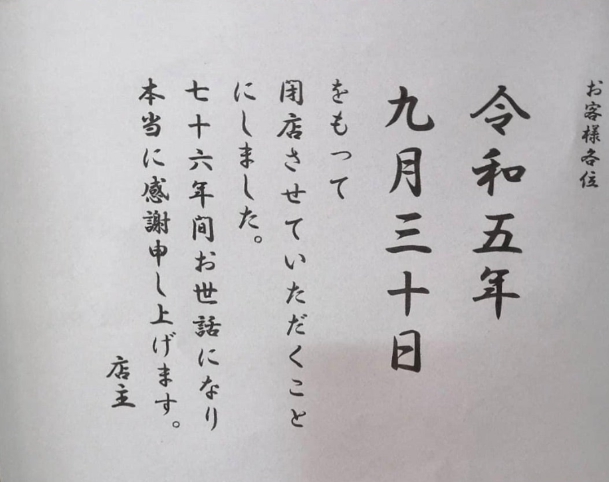 お客様各位
令和五年
九月三十日
をもって
閉店させていただくこと
にしました。
七十六年間お世話になり
本当に感謝申し上げます。
店主